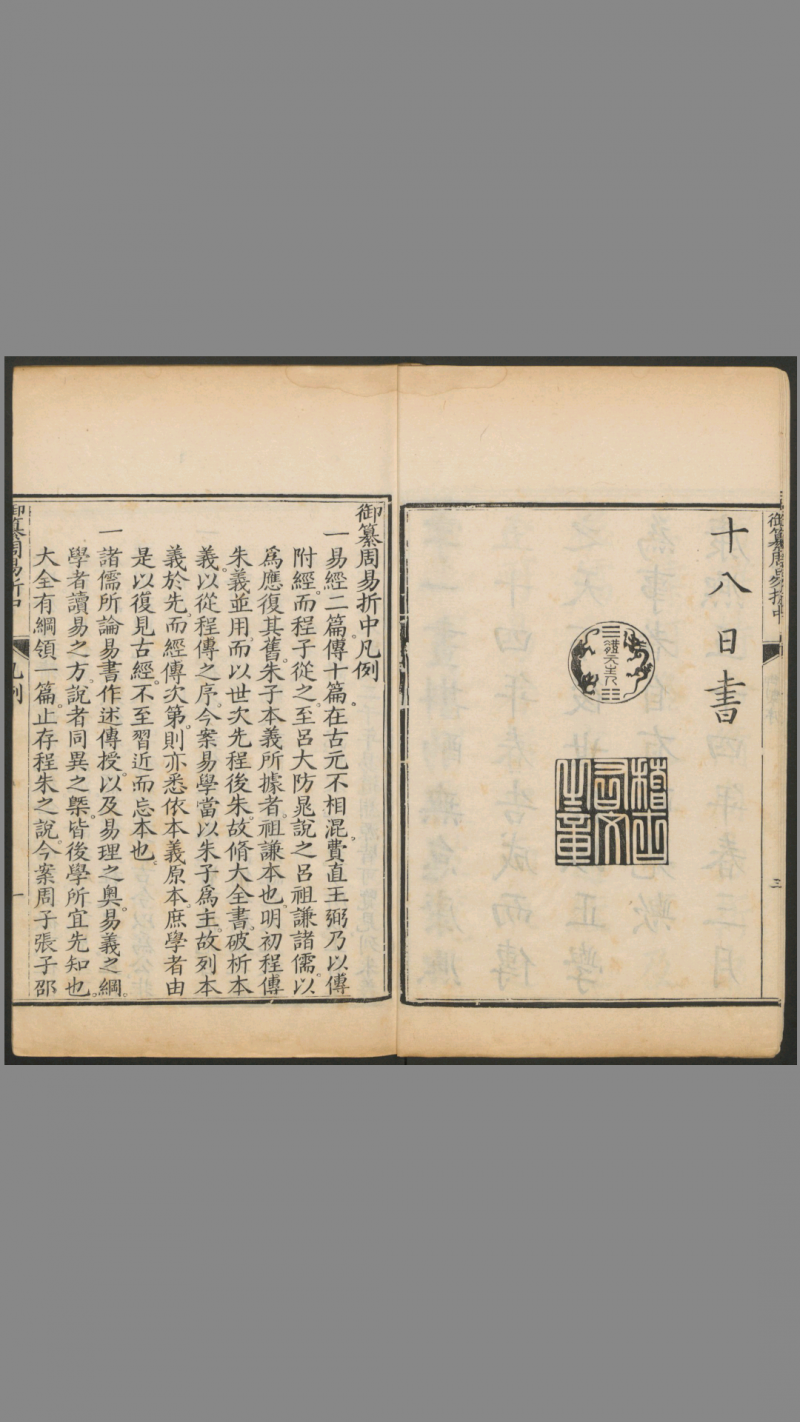 御纂周易折中
三
十八日書
體元主人
稽古右文之章
御纂周易折中凡例
一易經二篇。傳十篇。在古元不相混。費直王弼乃以傳
附經。而程子從之。至呂大防晁說之呂祖謙諸儒。以
爲應復其舊。朱子本義所據者。祖謙本也。明初程傳
朱義並用。而以世次先程後朱。故脩大全書。破析本
義。以從程傳之序。今案易學當以朱子爲主。故列本
義於先。而經傳次第。則亦悉依本義原本。庶學者由
是以復見古經。不至習近而忘本也。
一諸儒所論易書作述傳授。以及易理之奧。易義之綱。
學者讀易之方。說者同異之槩。皆後學所宜先知也。
大全有綱領一篇。止存程朱之說。今案周子張子邵
御纂周易折中
凡例
一